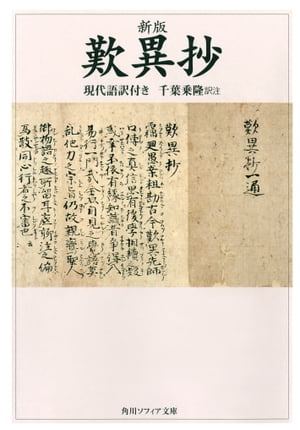 新版
歎異抄
現代語訳付き 千葉乗隆 訳注
歎異抄一通
歎異抄
竊廻愚案粗勘古今歎異先師
口傳之真信思有後學相續之
疑惑幸不依有縁知識者争得入
易行一門哉全以自見之覚語莫
乱他力之宗旨仍故親鸞聖人
御物語之趣所留耳底聊注之偏
為散同心行者之不審也
角川ソフィア文庫